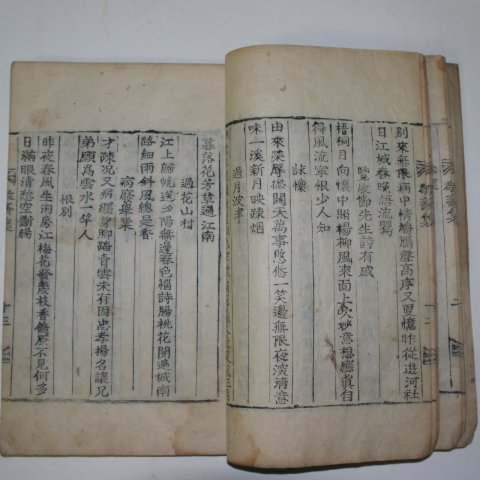 別來無限病中情鴻鴈聲高序又更憶昨從遊河社
日江城春晚語流鶯
覽康節先生詩有感
梧桐月向懷中照楊柳風來面上吹妙意想應眞自
得風流寧恨少人知
詠懷
由來榮辱摠關天萬事悠悠一笑邊無限夜濱清意
味一溪新月映疎烟
過月波津
暮落花芳草過江南
過花山村
江上歸帆送夕陽無邊春色惱詩腸桃花開遍城南
路細雨斜風總是香
病廢擧業
才疎況又病纏身脚踏青雲未有因忠孝揚名讓兄
弟願爲雲水一竿人
恨別
昨夜春風生洞房江梅花發幾枝香無不見何多
日滿眼清愁空斷腸